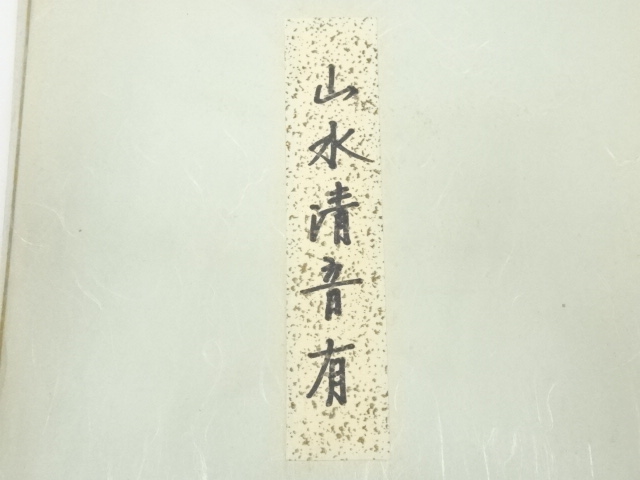 山水清音有